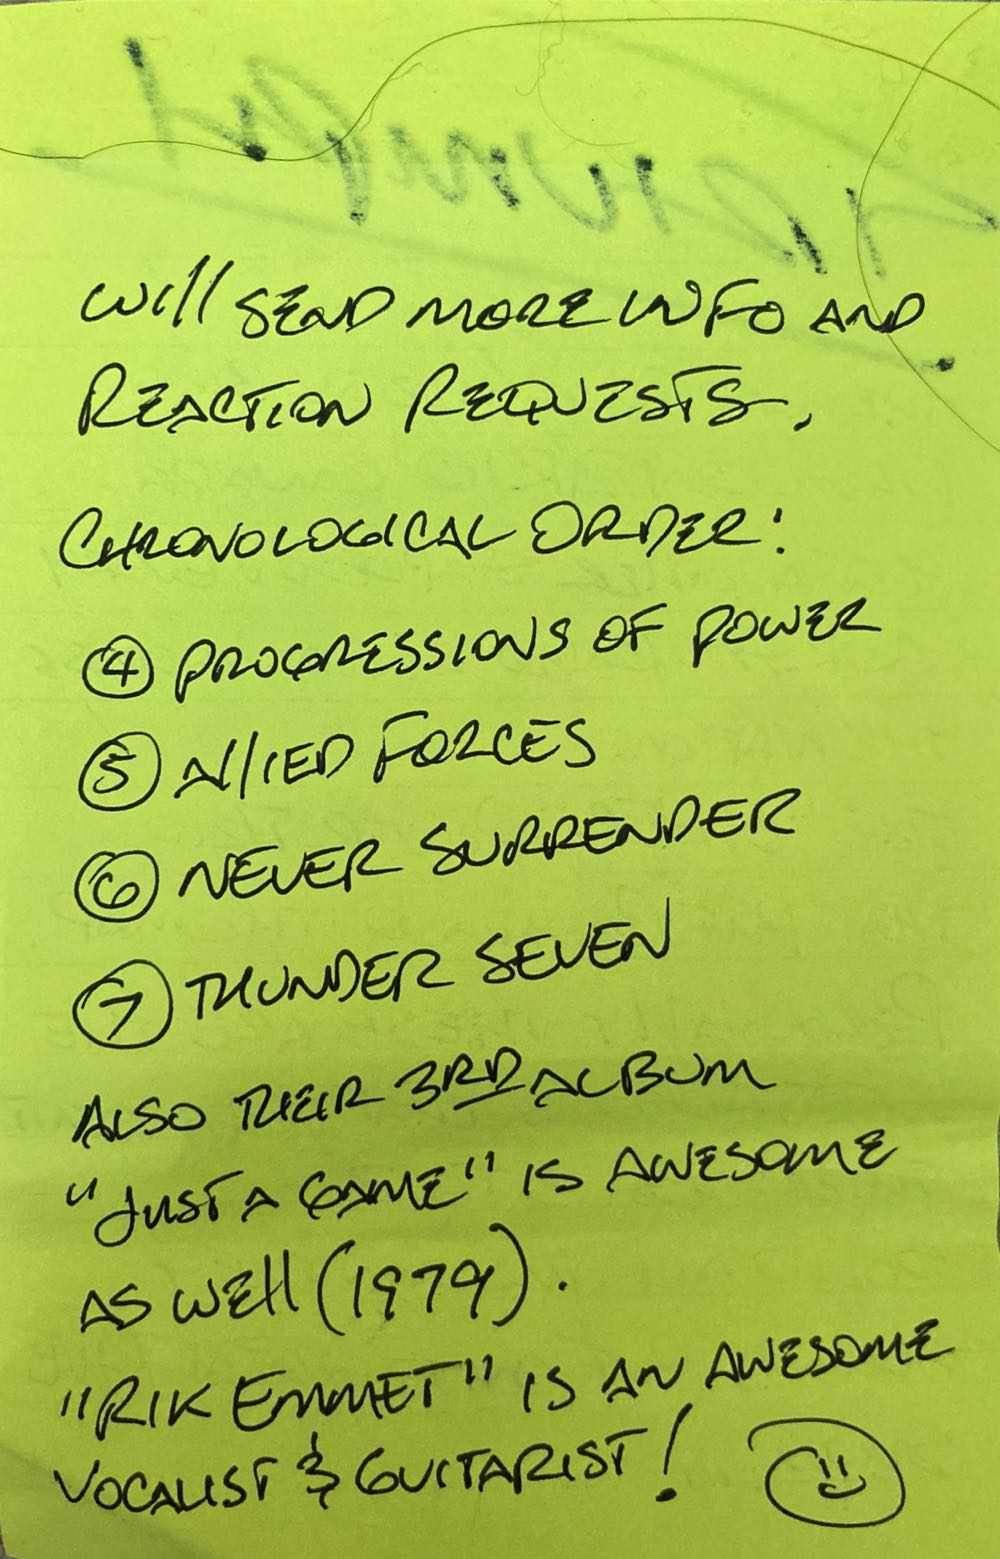 Will SEND MORE INFO AND
REACTION REQUESTS.
CHRONOLOGICAL ORDER:
④ PROGRESSIONS OF POWER
⑤ AllIED FORCES
⑥ NEVER SURRENDER
⑦ THUNDER SEVEN
ALSO THEIR 3RD ALBUM
"JUST A GAME" IS AWESOME
AS WEll (1979).
"RIK EMMET" IS AN AWESOME
VOCALIST & GUITARIST!